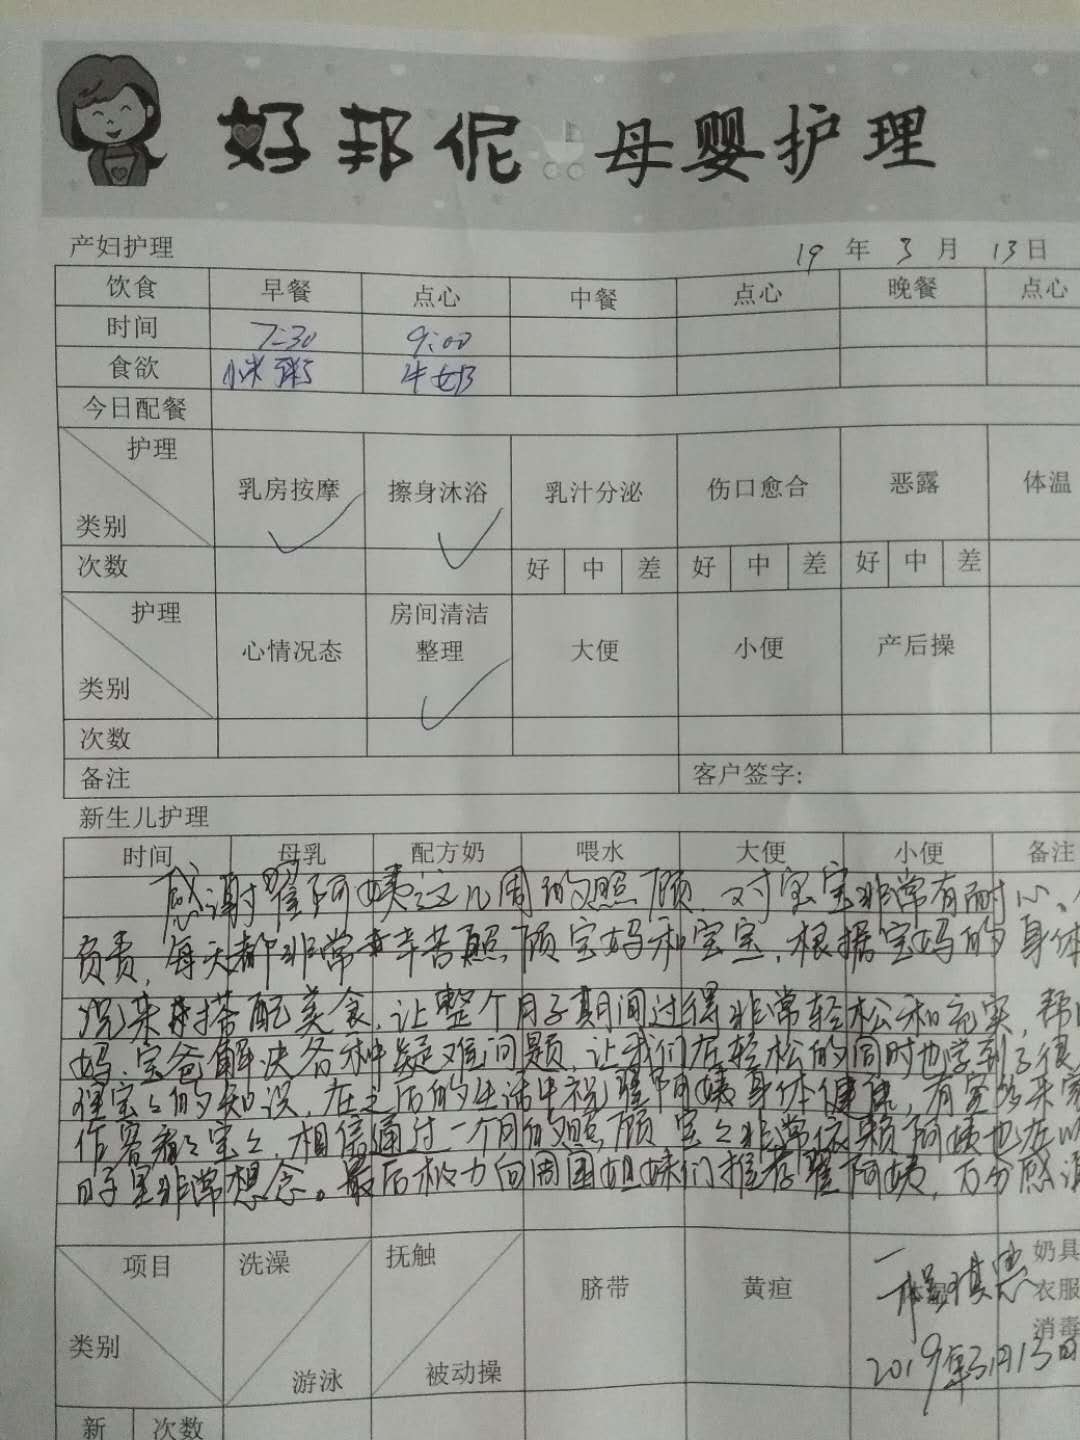 好邦伲 母婴护理
产妇护理 19 年 3 月 13 日
饮食 早餐 点心 中餐 点心 晚餐 点心
时间 7:30 9:00
食欲 小米粥 牛奶
今日配餐
护理 类别 乳房按摩 擦身沐浴 乳汁分泌 伤口愈合 恶露 体温
次数 好 中 差 好 中 差 好 中 差
护理 类别 心情况态 房间清洁整理 大便 小便 产后操
次数
备注 客户签字:
新生儿护理
时间 母乳 配方奶 喂水 大便 小便 备注
感谢翟阿姨这几周的照顾，对宝宝非常有耐心、
负责，每天都非常辛苦照顾宝妈和宝宝，根据宝妈的身体
况来搭配美食，让整个月子期间过得非常轻松和充实，帮
妈、宝爸解决各种疑难问题，让我们在轻松的同时也学到了很
理宝宝的知识，在之后的生活中祝翟阿姨身体健康，有空多来
作客看看宝宝，相信通过一个月的照顾宝宝非常依赖阿姨也在以
日子里非常想念。最后极力向周围姐妹们推荐翟阿姨，万分感谢
项目 类别 洗澡 游泳 抚触 被动操 脐带 黄疸 奶具 衣服 消毒
2019年3月13日
新 次数